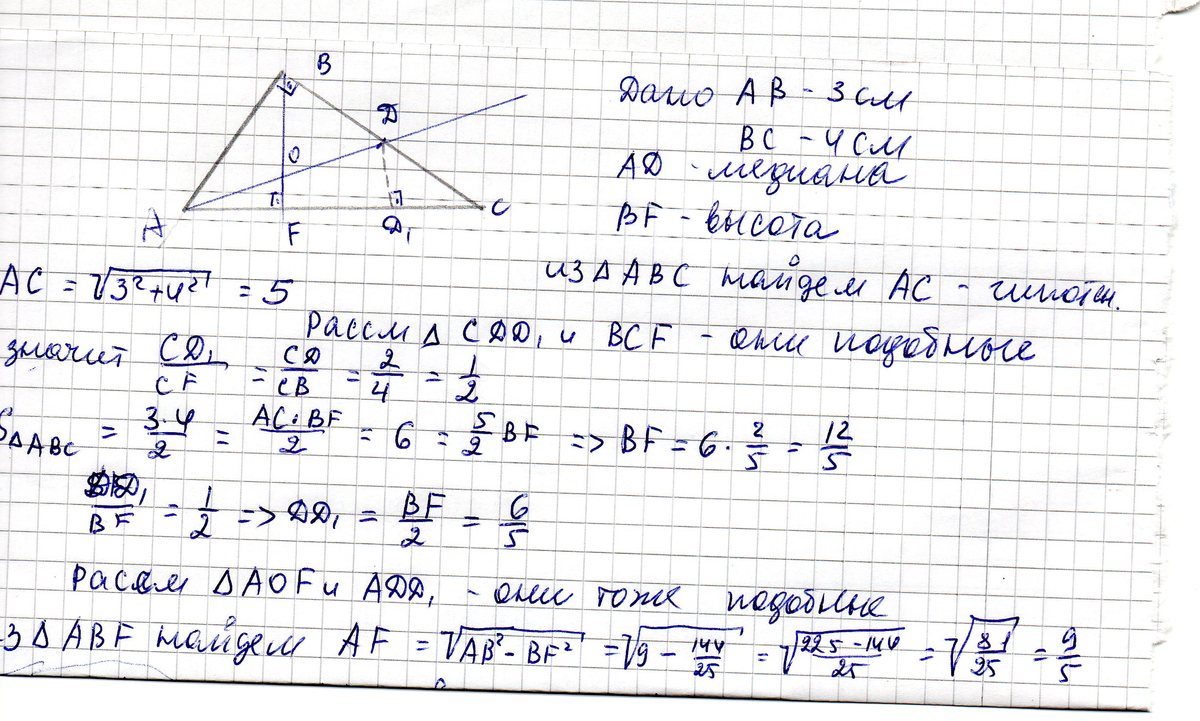 B
D
O
A
F
D₁
C
Дано AB - 3 см
BC - 4 см
AD - медиана
BF - высота
из △ ABC найдем AC - гипотен.
AC = √(3²+4²) = 5
Рассм △ CDD₁ и BCF - они подобные
значит CD₁/CF = CD/CB = 2/4 = 1/2
S△ABC = 3·4/2 = AC·BF/2 = 6 = 5/2 BF => BF = 6 · 2/5 = 12/5
DD₁/BF = 1/2 => DD₁ = BF/2 = 6/5
Рассм △AOF и ADD₁ - они тоже подобные
из △ ABF найдем AF = √(AB²-BF²) = √(9 - 144/25) = √((225-144)/25) = √(81/25) = 9/5